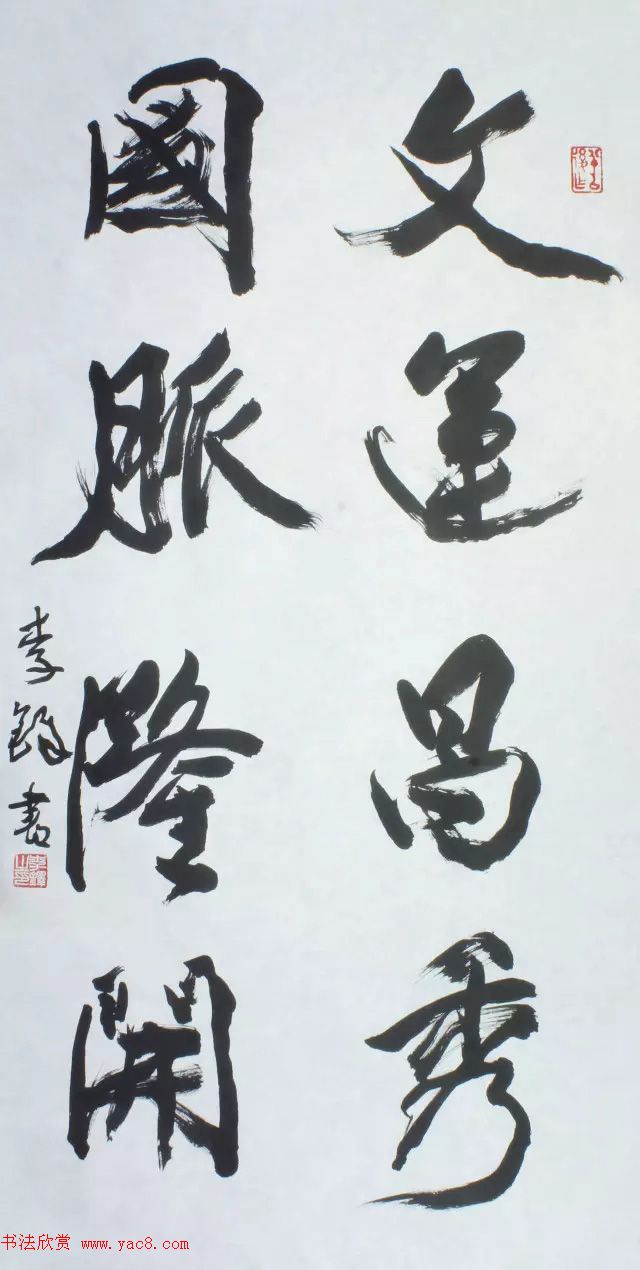 文運昌秀
國脈隆開
李鐸書
书法欣赏 www.yac8.com